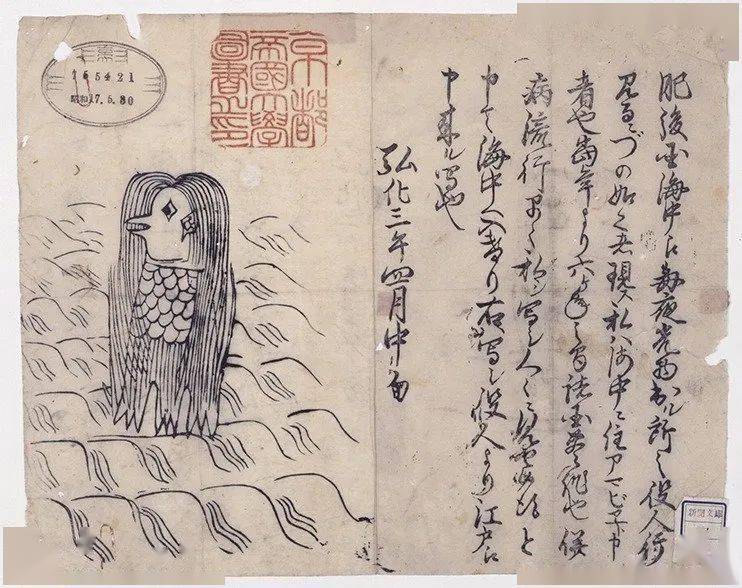 肥後国海中江毎夜光物出ル所之役人行
見るニづの如く者現ス私ハ海中ニ住アマビヱト申
者也當年より六ヶ年之間諸国豊作也併
病流行早々私ヲ写シ人々ニ見セ候得と
申て海中へ入けり右写シ役人より江戸江
申来ル写也
弘化三年四月中旬
京都
帝國大學
圖書之印
165421
昭和17.5.30
新聞文庫